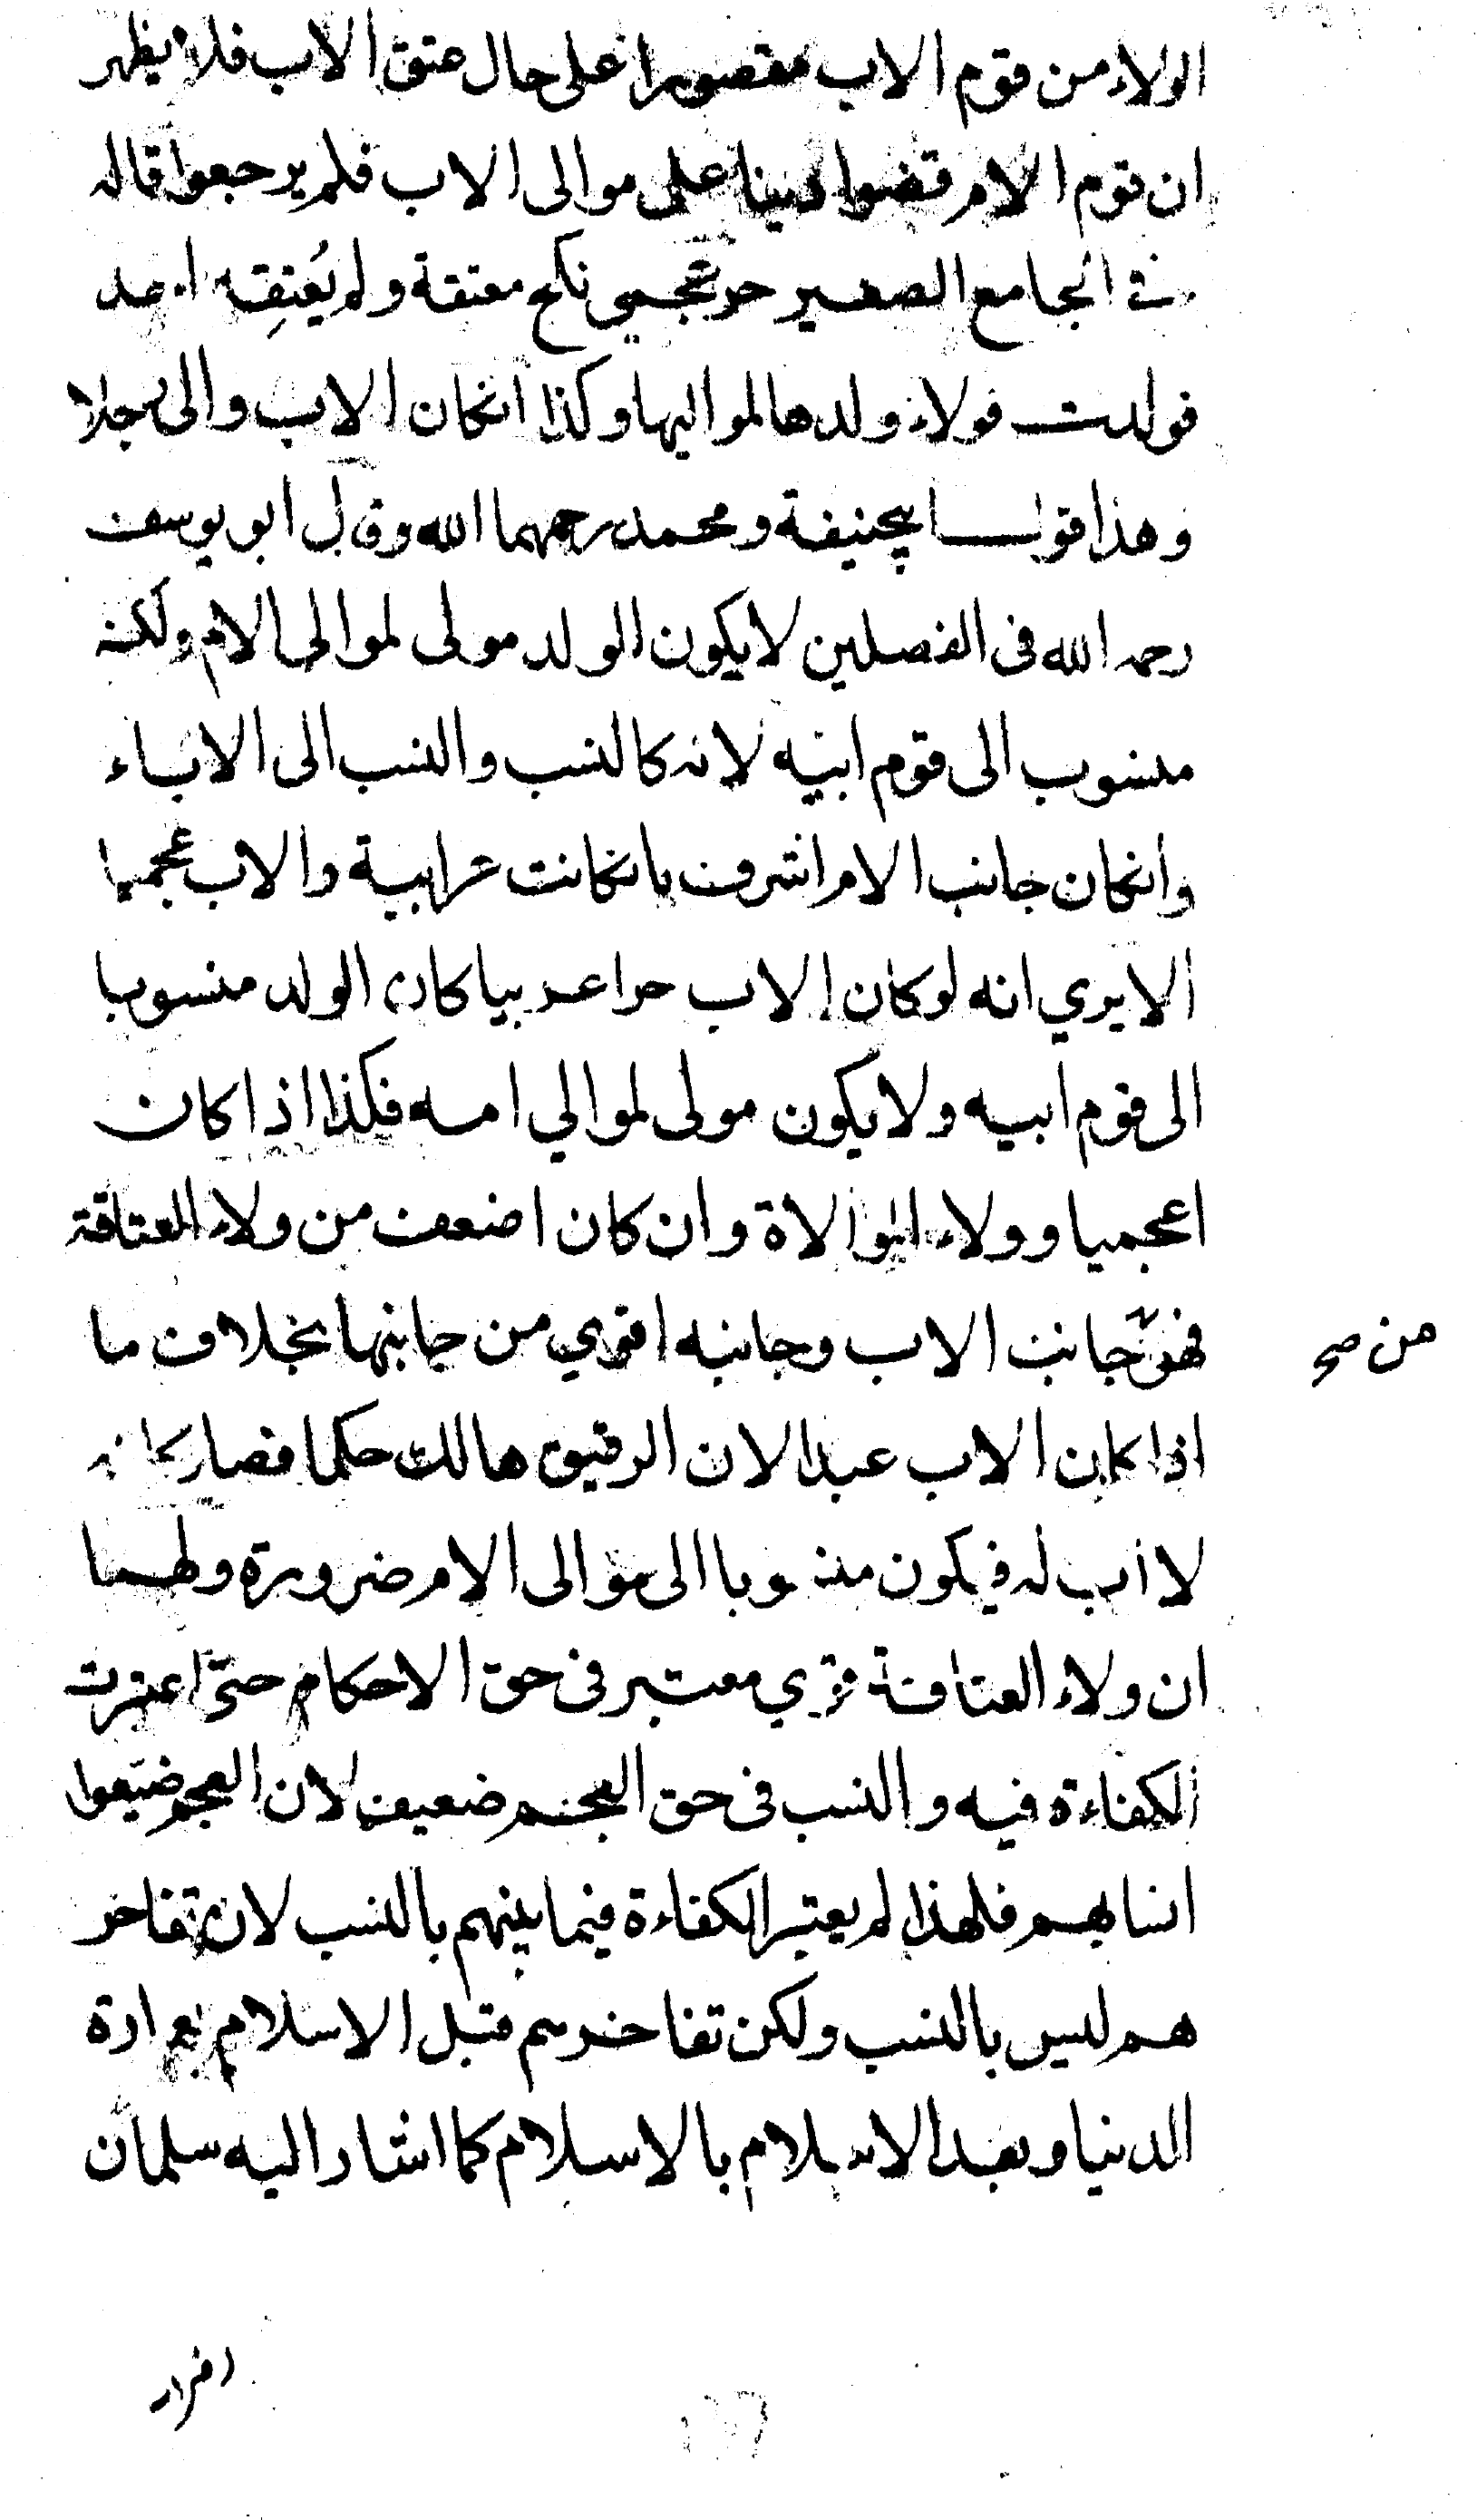 الولاء من قوم الاب مقصورا على حال عتق الاب فلا يظهر
ان قوم الام قضوا دينا على موالى الاب فلم يرجعوا قاله
فى الجامع الصغير حر عجمى نكح معتقة ولم يُعتِقه احد
فولدت فولاء ولدها لمواليها وكذا انكان الاب والى رجلا
وهذا قول ابيحنيفة ومحمد رحمهما الله وقال ابو يوسف
رحمه الله فى الفصلين لا يكون الولد مولى لموالى الام ولكنه
منسوب الى قوم ابيه لانه كالنسب والنسب الى الاباء
وانكان جانب الام اشرف بانكانت عرابية والاب عجميا
الا يري انه لوكان الاب حرا عربيا كان الولد منسوبا
الى قوم ابيه ولا يكون مولى لموالي امه فكذا اذا كان
اعجميا وولاء الموالاة وان كان اضعف من ولاء العتاقة
فهو جانب الاب وجانبه اقوي من جانبها بخلاف ما
من صح
اذا كان الاب عبدا لان الرقيق هالك حكما فصار كانه
لا اب له فيكون منسوبا الى موالى الام ضرورة ولهما
ان ولاء العتاقة قوي معتبر فى حق الاحكام حتى اعتبرت
الكفاءة فيه والنسب فى حق العجم ضعيف لان العجم ضيّعوا
انسابهم فلهذا لم يعتبر الكفاءة فيما بينهم بالنسب لان تفاخر
هم ليس بالنسب ولكن تفاخرهم قبل الاسلام بعمارة
الدنيا وبعد الاسلام بالاسلام كما اشار اليه سلمان